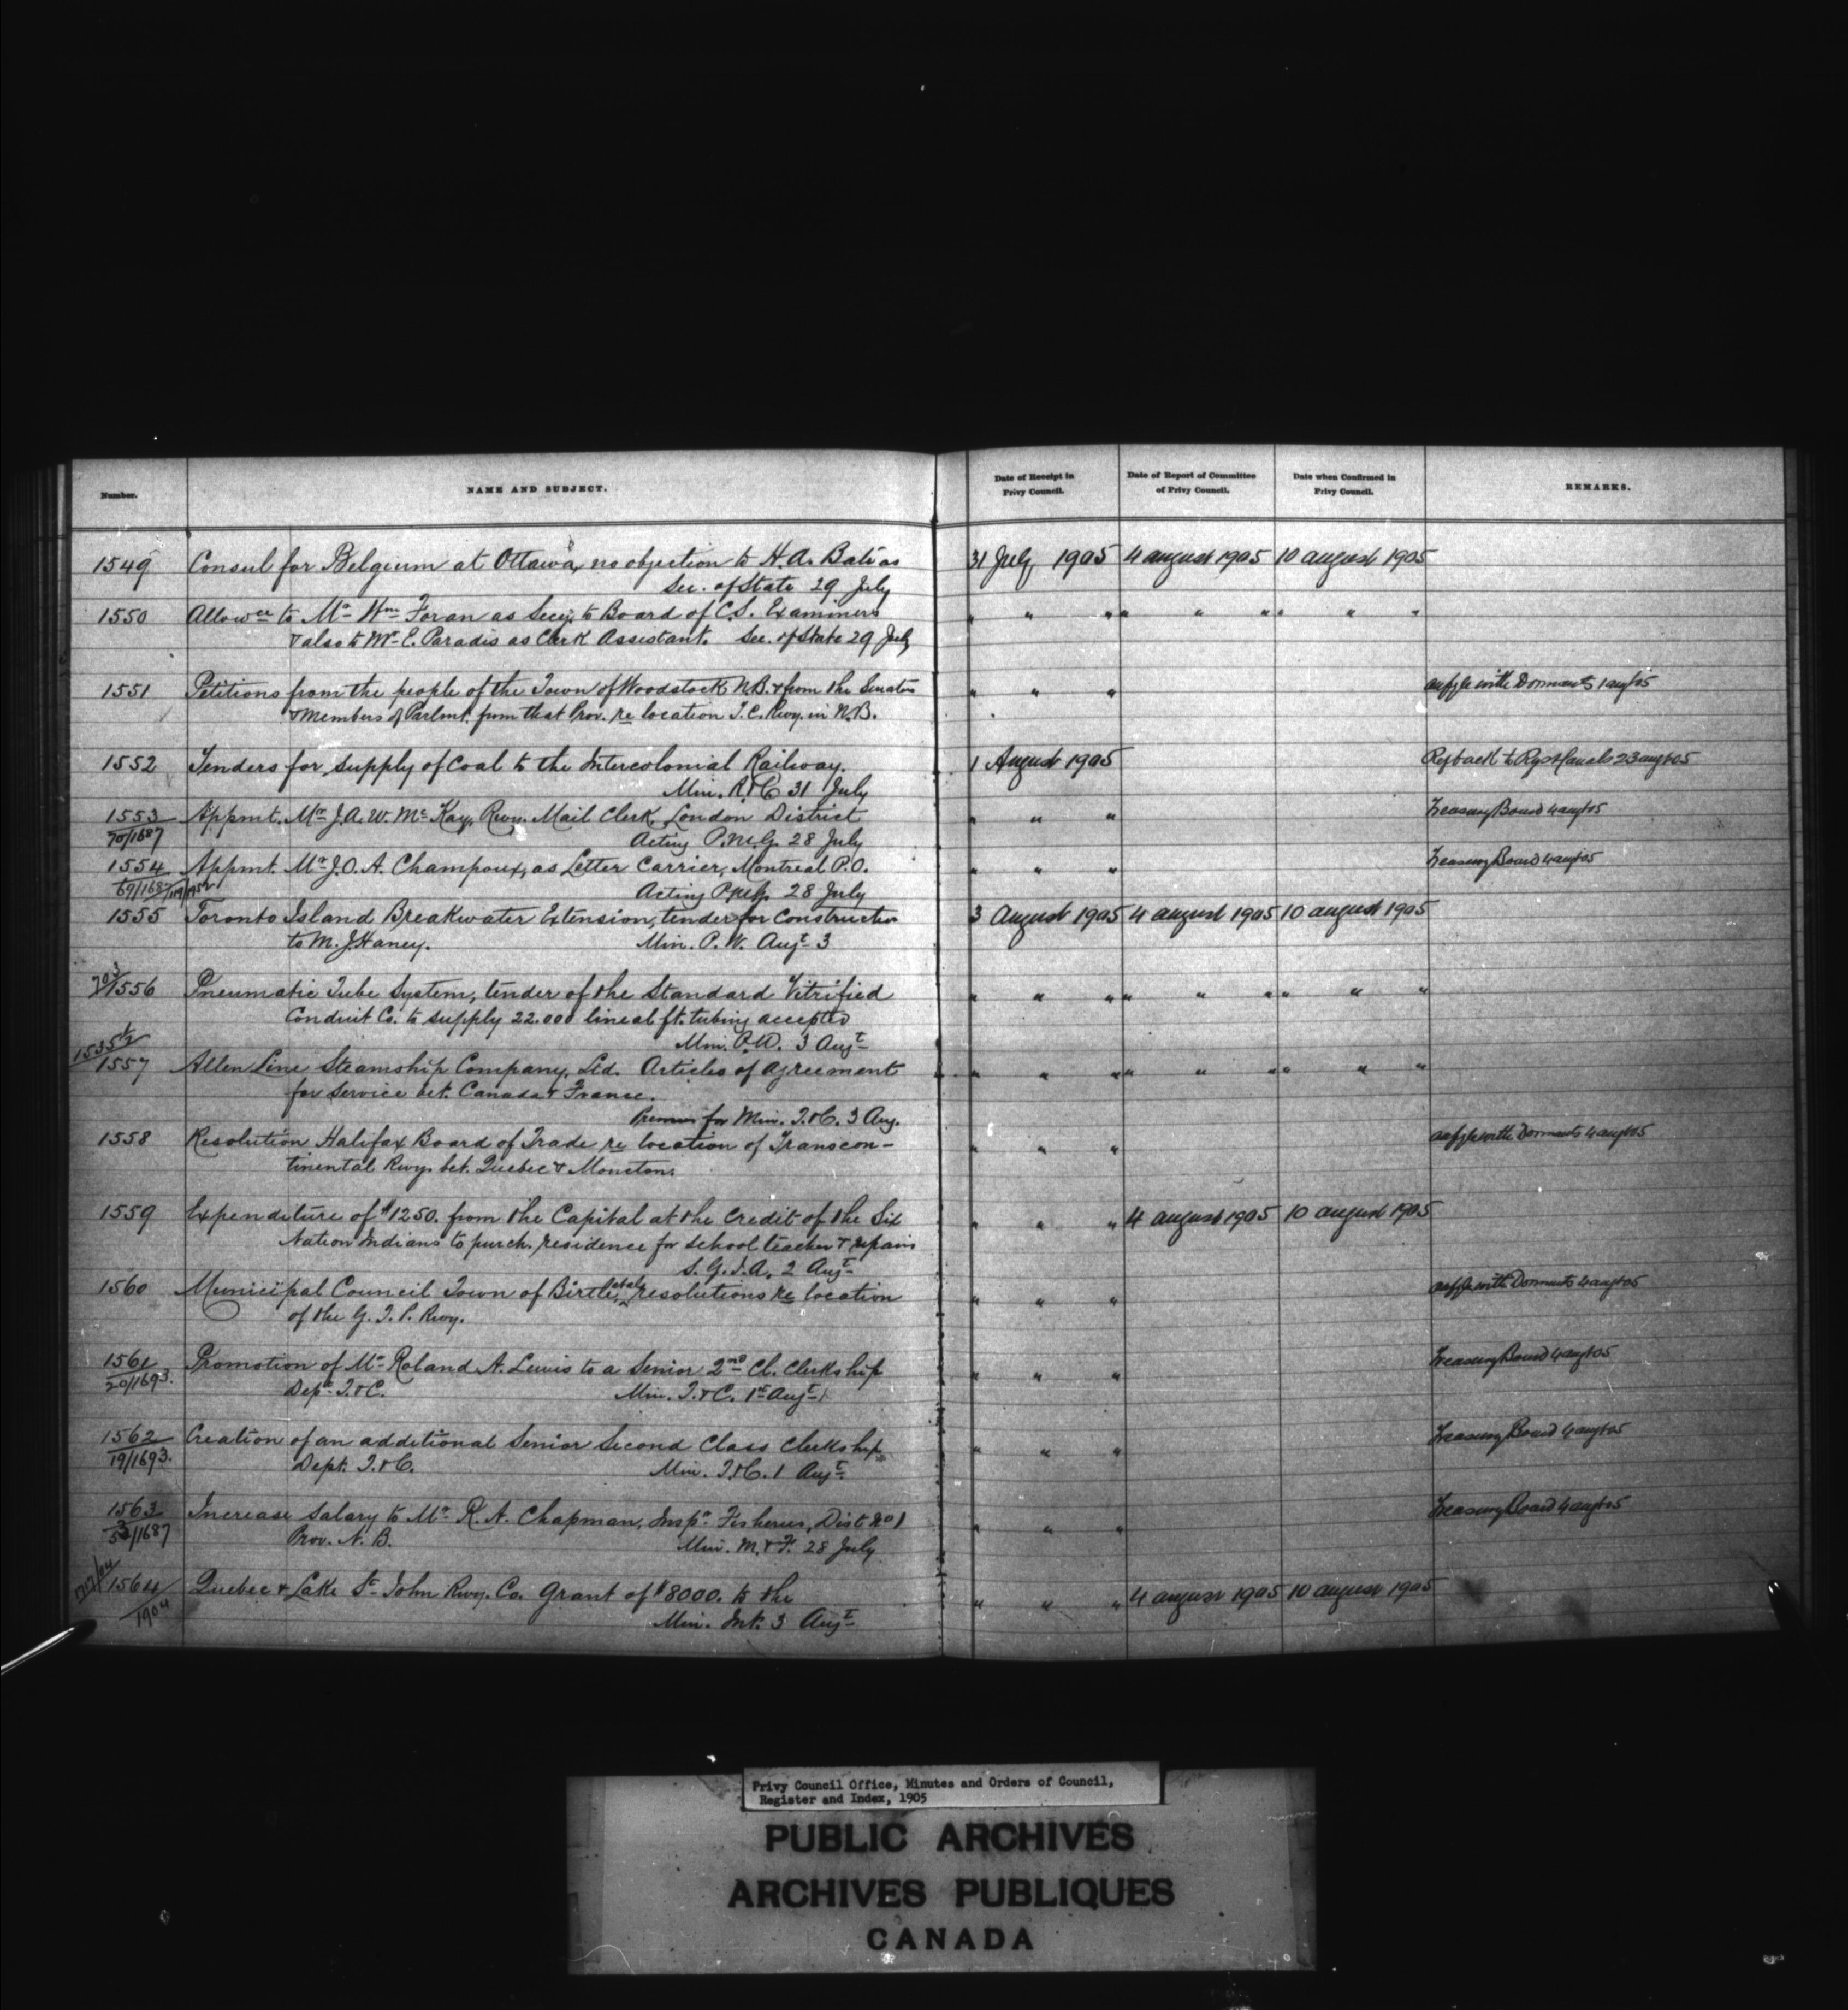 Number.
NAME AND SUBJECT.
Date of Receipt in
Privy Council.
Date of Report of Committee
of Privy Council.
Date when Confirmed in
Privy Council.
REMARKS.
1549 Consul for Belgium at Ottawa, no objection to H. A. Bate as 31 July 1905 4 august 1905 10 august 1905
Sec. of State 29 July
1550 Allowce to Mr Wm Foran as Secy. to Board of C.S. Examiners " " " " " " " "
& also to Mr E. Paradis as Clerk Assistant. Sec. of State 29 July
1551 Petitions from the people of the Town of Woodstock N.B. & from the Senators " " " with Dormants 1 augt 05
& Members of Parlmt. from that Prov. re location T. C. Rwy. in N.B.
1552 Tenders for supply of Coal to the Intercolonial Railway. 1 August 1905 Ref back to Rys & Canals 23 augt 05
Min. R. & C 31 July
1553 Appmt. Mr J. A. W. McKay, Rwy. Mail Clerk, London District " " " Treasury Board 4 augt 05
70/1687 Acting P.M.G. 28 July
1554 Appmt. Mr J. O. A. Champoux, as Letter Carrier, Montreal P.O. " " " Treasury Board 4 augt 05
69/1687 Acting P.M.G. 28 July
1555 Toronto Island Breakwater Extension, tender for construction 3 August 1905 4 august 1905 10 august 1905
to M. J. Haney. Min. P. W. Augt 3
1556 Pneumatic Tube System, tender of the Standard Vitrified " " " " " " " "
Conduit Co. to supply 22.000 lineal ft. tubing accepted
Min. P.W. 3 Augt
1535 1/2
1557 Allen Line Steamship Company, Ltd. Articles of agreement " " " " " " " "
for service bet. Canada & France.
for Min. T. & C. 3 Aug.
1558 Resolution Halifax Board of Trade re location of Transcon- " " " with Dormants 4 augt 05
tinental Rwy. bet. Quebec & Moncton.
1559 Expenditure of $1250. from the Capital at the Credit of the Six " " " 4 august 1905 10 august 1905
Nation Indians to purch. residence for school teacher & repairs
S. G. I. A. 2 Augt
1560 Municipal Council Town of Birtle, et al, resolutions re location " " " with Dormants 4 augt 05
of the G. T. P. Rwy.
1561 Promotion of Mr Roland A. Lewis to a Senior 2nd Cl. Clerkship " " " Treasury Board 4 augt 05
20/1693. Dept T. & C. Min. T. & C. 1st Augt
1562 Creation of an additional Senior Second Class Clerkship " " " Treasury Board 4 augt 05
19/1693. Dept. T. & C. Min. T. & C. 1 Augt
1563 Increase salary to Mr R. A. Chapman, Inspr Fisheries, Dist No 1 " " " Treasury Board 4 augt 05
Prov. N. B. Min. M. & F. 28 July
1564 Quebec & Lake St John Rwy. Co. Grant of $8000. to the " " " 4 august 1905 10 august 1905
1904 Min. Int. 3 Augt
Privy Council Office, Minutes and Orders of Council,
Register and Index, 1905
PUBLIC ARCHIVES
ARCHIVES PUBLIQUES
CANADA